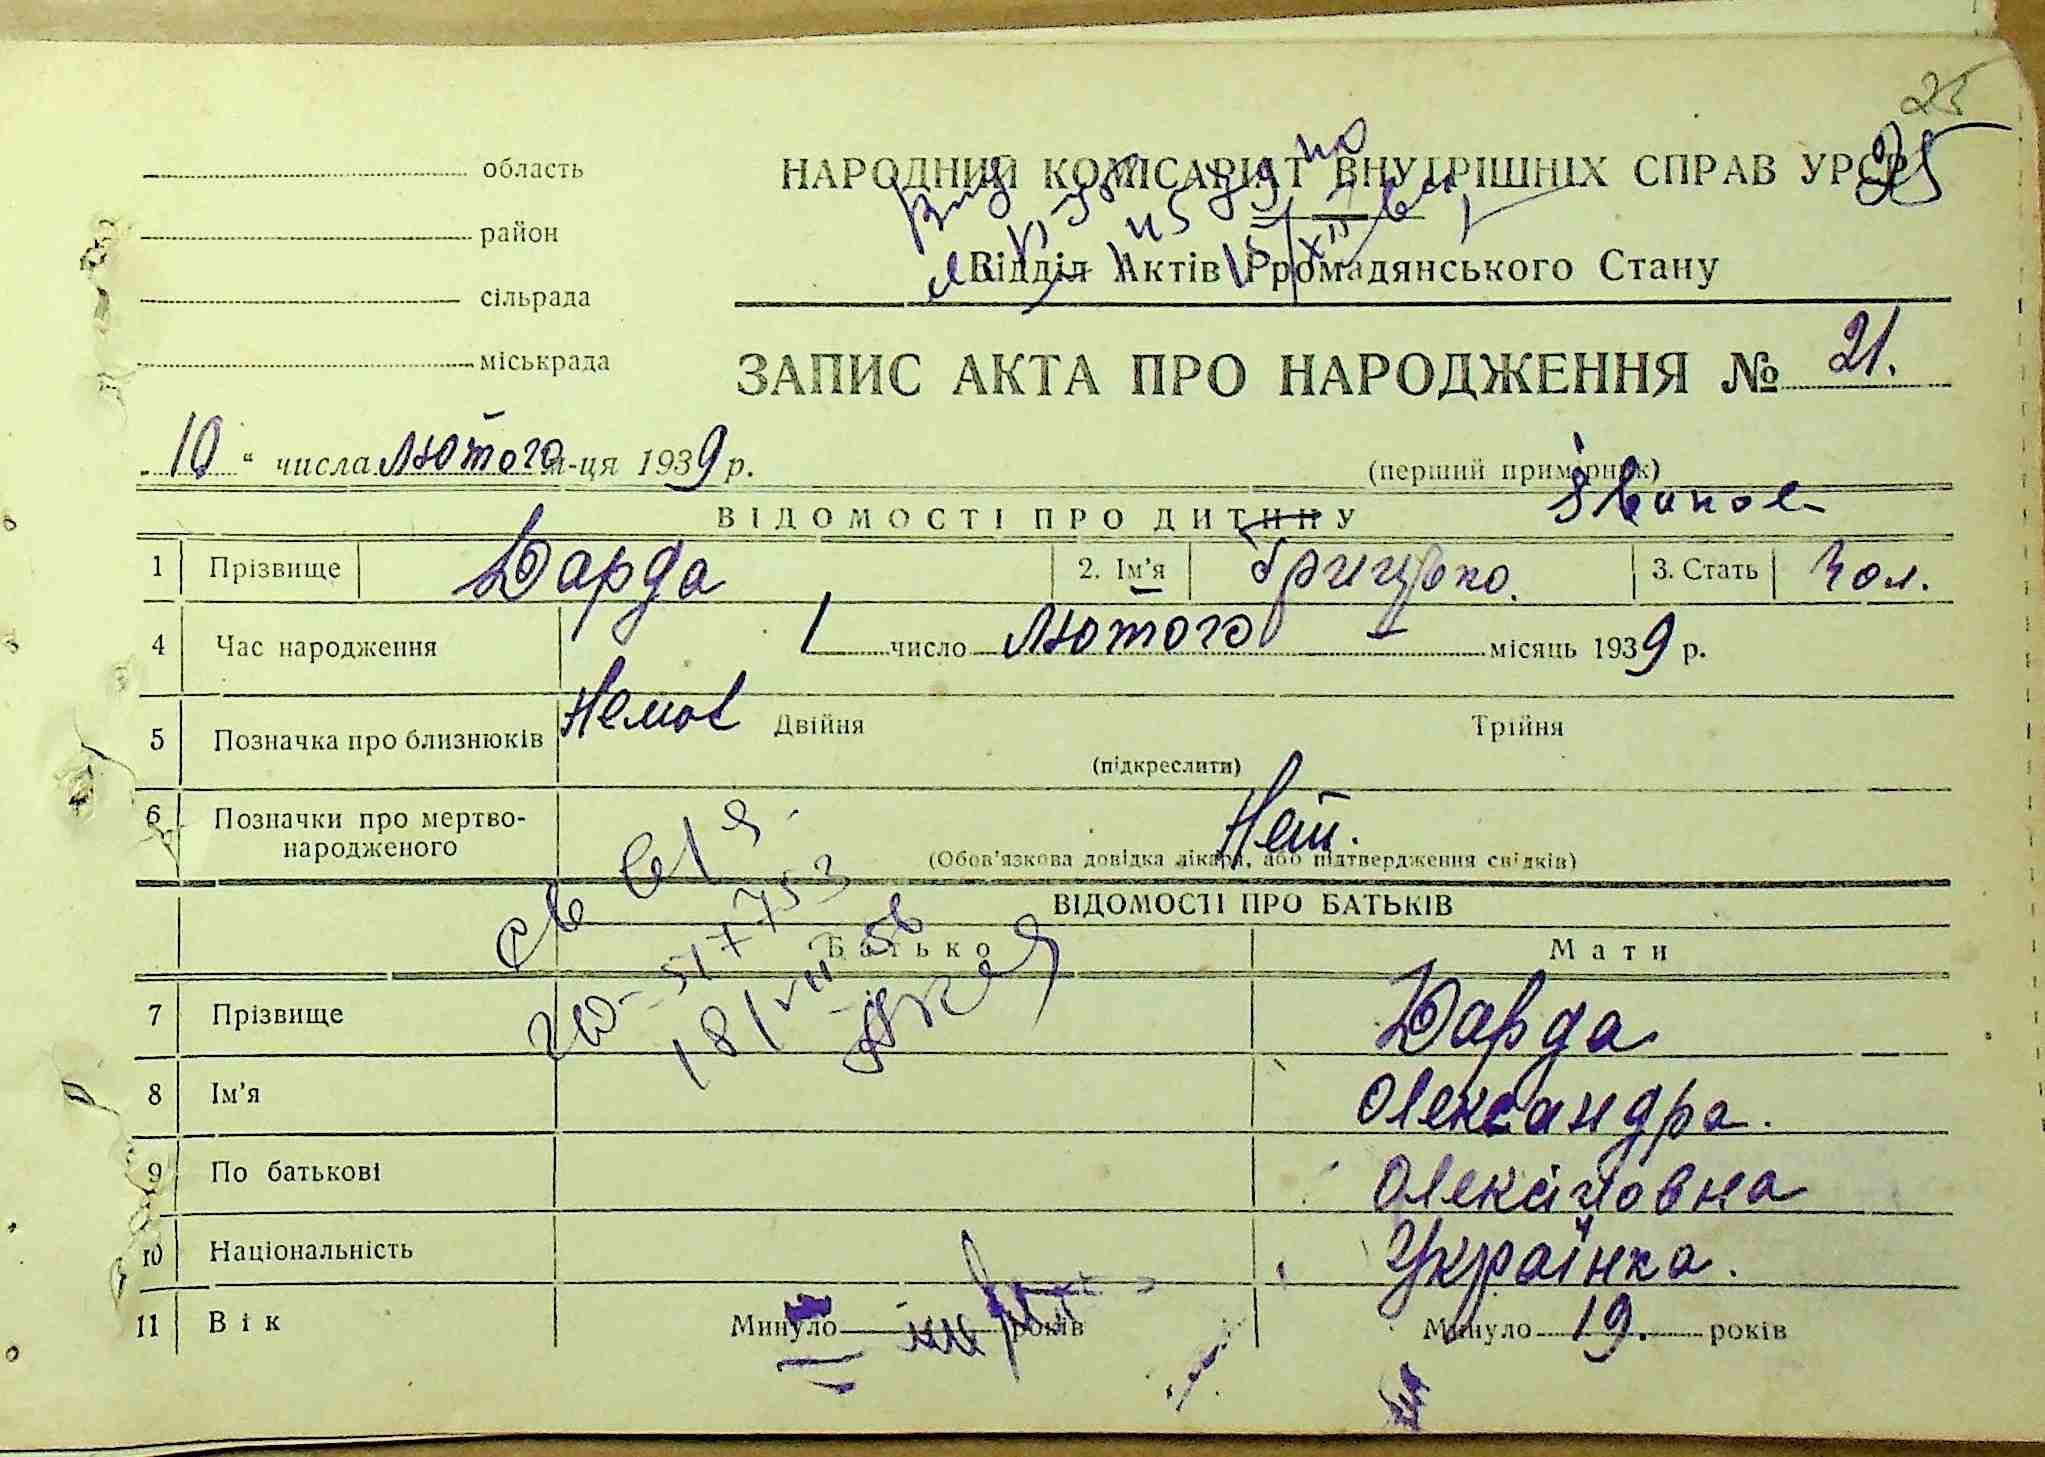 25
область
НАРОДНИЙ КОМІСАРІАТ ВНУТРІШНІХ СПРАВ УРСР
25
район
Відділ Актів Громадянського Стану
сільрада
міськрада
ЗАПИС АКТА ПРО НАРОДЖЕННЯ № 21.
„10“ числа лютого м-ця 1939 р.
(перший примірник)
ВІДОМОСТІ ПРО ДИТИНУ
1 Прізвище Дарда 2. Ім’я Грицько. 3. Стать Чол.
4 Час народження 1 число лютого місяць 1939 р.
5 Позначка про близнюків Немає Двійня Трійня
(підкреслити)
6 Позначки про мертво-
народженого Нет.
(Обов’язкова довідка лікаря, або підтвердження свідків)
ВІДОМОСТІ ПРО БАТЬКІВ
Батько Мати
7 Прізвище Дарда
8 Ім’я Олександра.
9 По батькові Олексіловна
10 Національність Українка.
11 Вік Минуло років Минуло 19. років